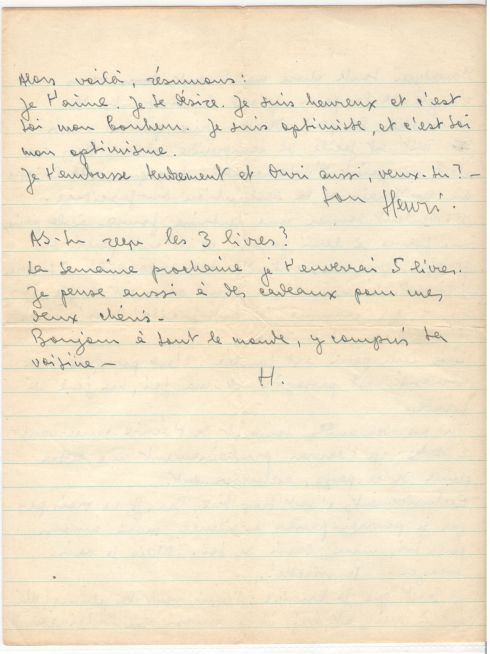 Alors voilà, résumons:
Je t'aime. Je te désire. Je suis heureux et c'est
toi mon bonheur. Je suis optimiste, et c'est toi
mon optimisme.
Je t'embrasse tendrement et Ouri aussi, veux-tu? -
ton Henri.
As-tu reçu les 3 livres?
La semaine prochaine je t'enverrai 5 livres.
Je pense aussi à des cadeaux pour mes
deux chéris -
Bonjour à tout le monde, y compris ta
voisine -
H.